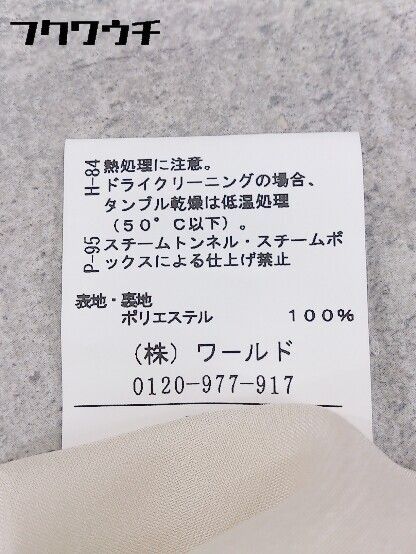 フクワウチ
H-84 熱処理に注意。
ドライクリーニングの場合、
タンブル乾燥は低温処理
（50°C以下）。
P-95 スチームトンネル・スチームボ
ックスによる仕上げ禁止
表地・裏地
ポリエステル 100％
（株）ワールド
0120-977-917